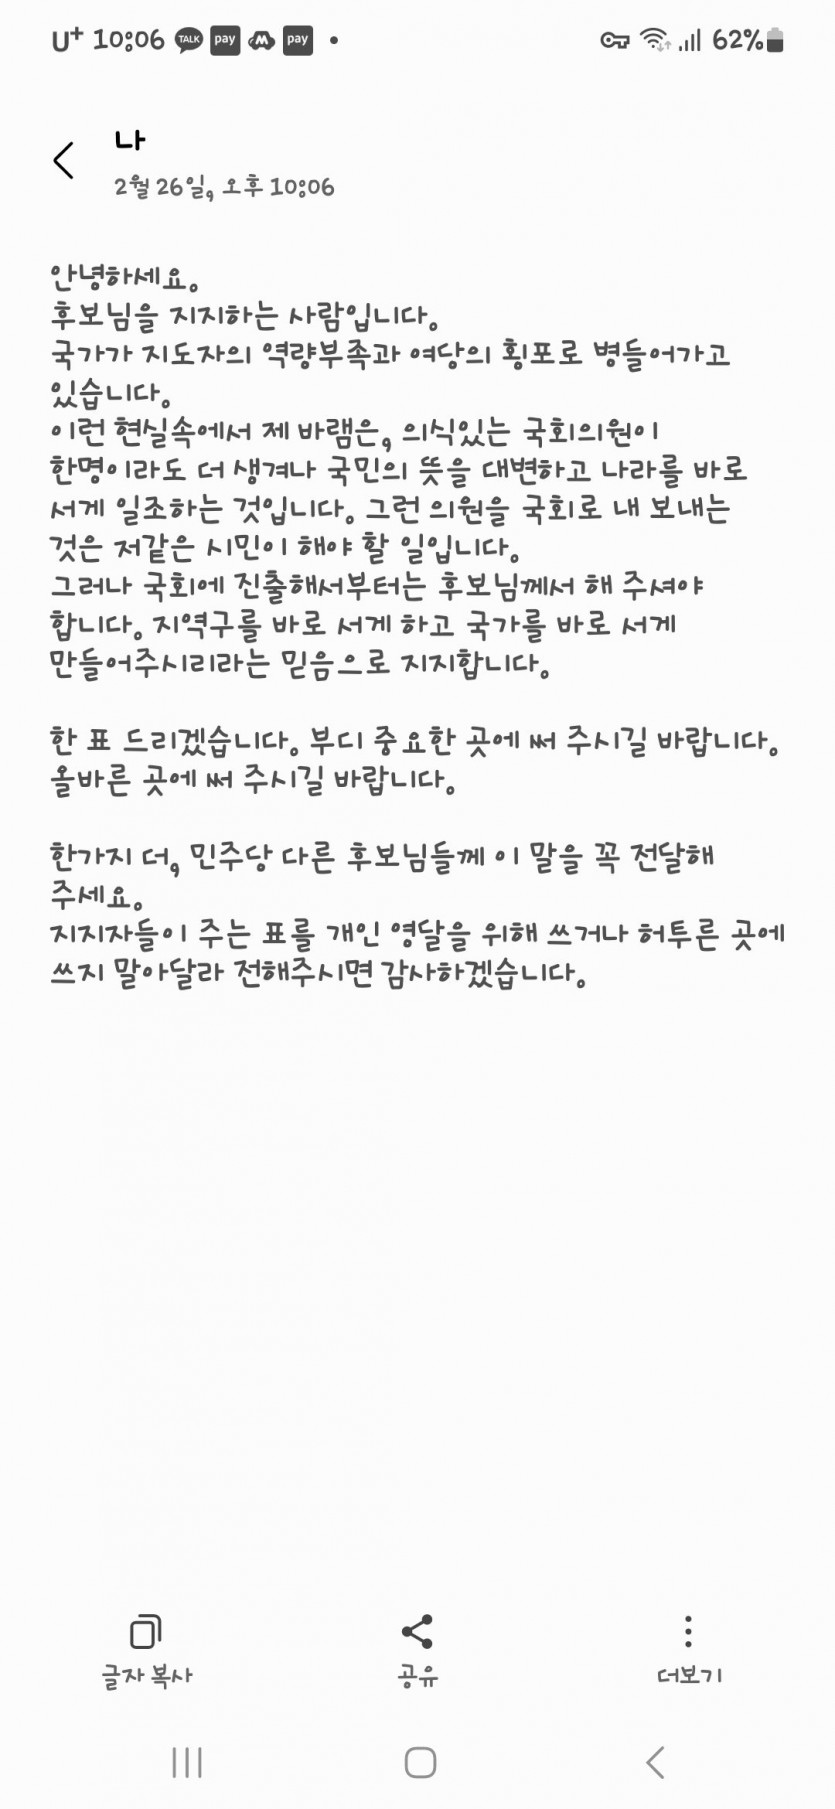 U+ 10:06 TALK pay M pay • 62%
나
2월 26일, 오후 10:06
안녕하세요.
후보님을 지지하는 사람입니다.
국가가 지도자의 역량부족과 여당의 횡포로 병들어가고
있습니다.
이런 현실속에서 제 바램은, 의식있는 국회의원이
한명이라도 더 생겨나 국민의 뜻을 대변하고 나라를 바로
서게 일조하는 것입니다. 그런 의원을 국회로 내 보내는
것은 저같은 시민이 해야 할 일입니다.
그러나 국회에 진출해서부터는 후보님께서 해 주셔야
합니다. 지역구를 바로 서게 하고 국가를 바로 서게
만들어주시리라는 믿음으로 지지합니다.
한 표 드리겠습니다. 부디 중요한 곳에 써 주시길 바랍니다.
올바른 곳에 써 주시길 바랍니다.
한가지 더, 민주당 다른 후보님들께 이 말을 꼭 전달해
주세요.
지지자들이 주는 표를 개인 영달을 위해 쓰거나 허투른 곳에
쓰지 말아달라 전해주시면 감사하겠습니다.
글자 복사 공유 더보기